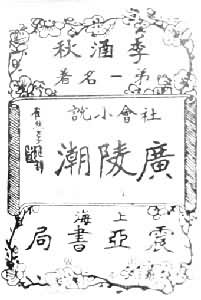 李涵秋
第一名著
社會小說
廣陵潮
上海
震亞書局